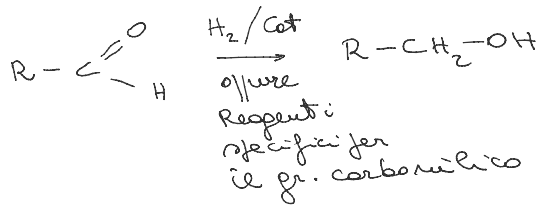 R - C = O H
H2/Cat
R-CH2-OH
oppure
Reagenti
specifici per
il gr. carbonilico